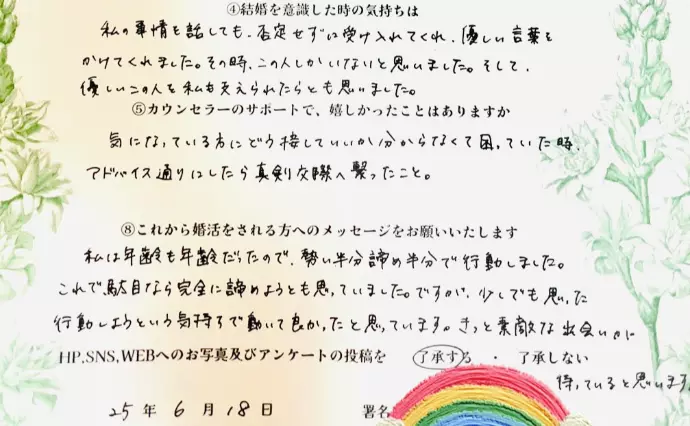 ④結婚を意識した時の気持ちは
私の事情を話しても、否定せずに受け入れてくれ、優しい言葉を
かけてくれました。その時、この人しかいないと思いました。そして、
優しいこの人を私も支えられたらとも思いました。
⑤カウンセラーのサポートで、嬉しかったことはありますか
気になっている方にどう接していいか分からなくて困っていた時、
アドバイス通りにしたら真剣交際へ繋ったこと。
⑧これから婚活をされる方へのメッセージをお願いいたします
私は年齢も年齢だったので、勢い半分諦め半分で行動しました。
これで駄目なら完全に諦めようとも思っていました。ですが、少しでも思った
行動しようという気持ちで動いて良かったと思っています。きっと素敵な出会いが
HP,SNS,WEBへのお写真及びアンケートの投稿を 了承する ・ 了承しない
待っていると思います。
25年 6月 18日 署名